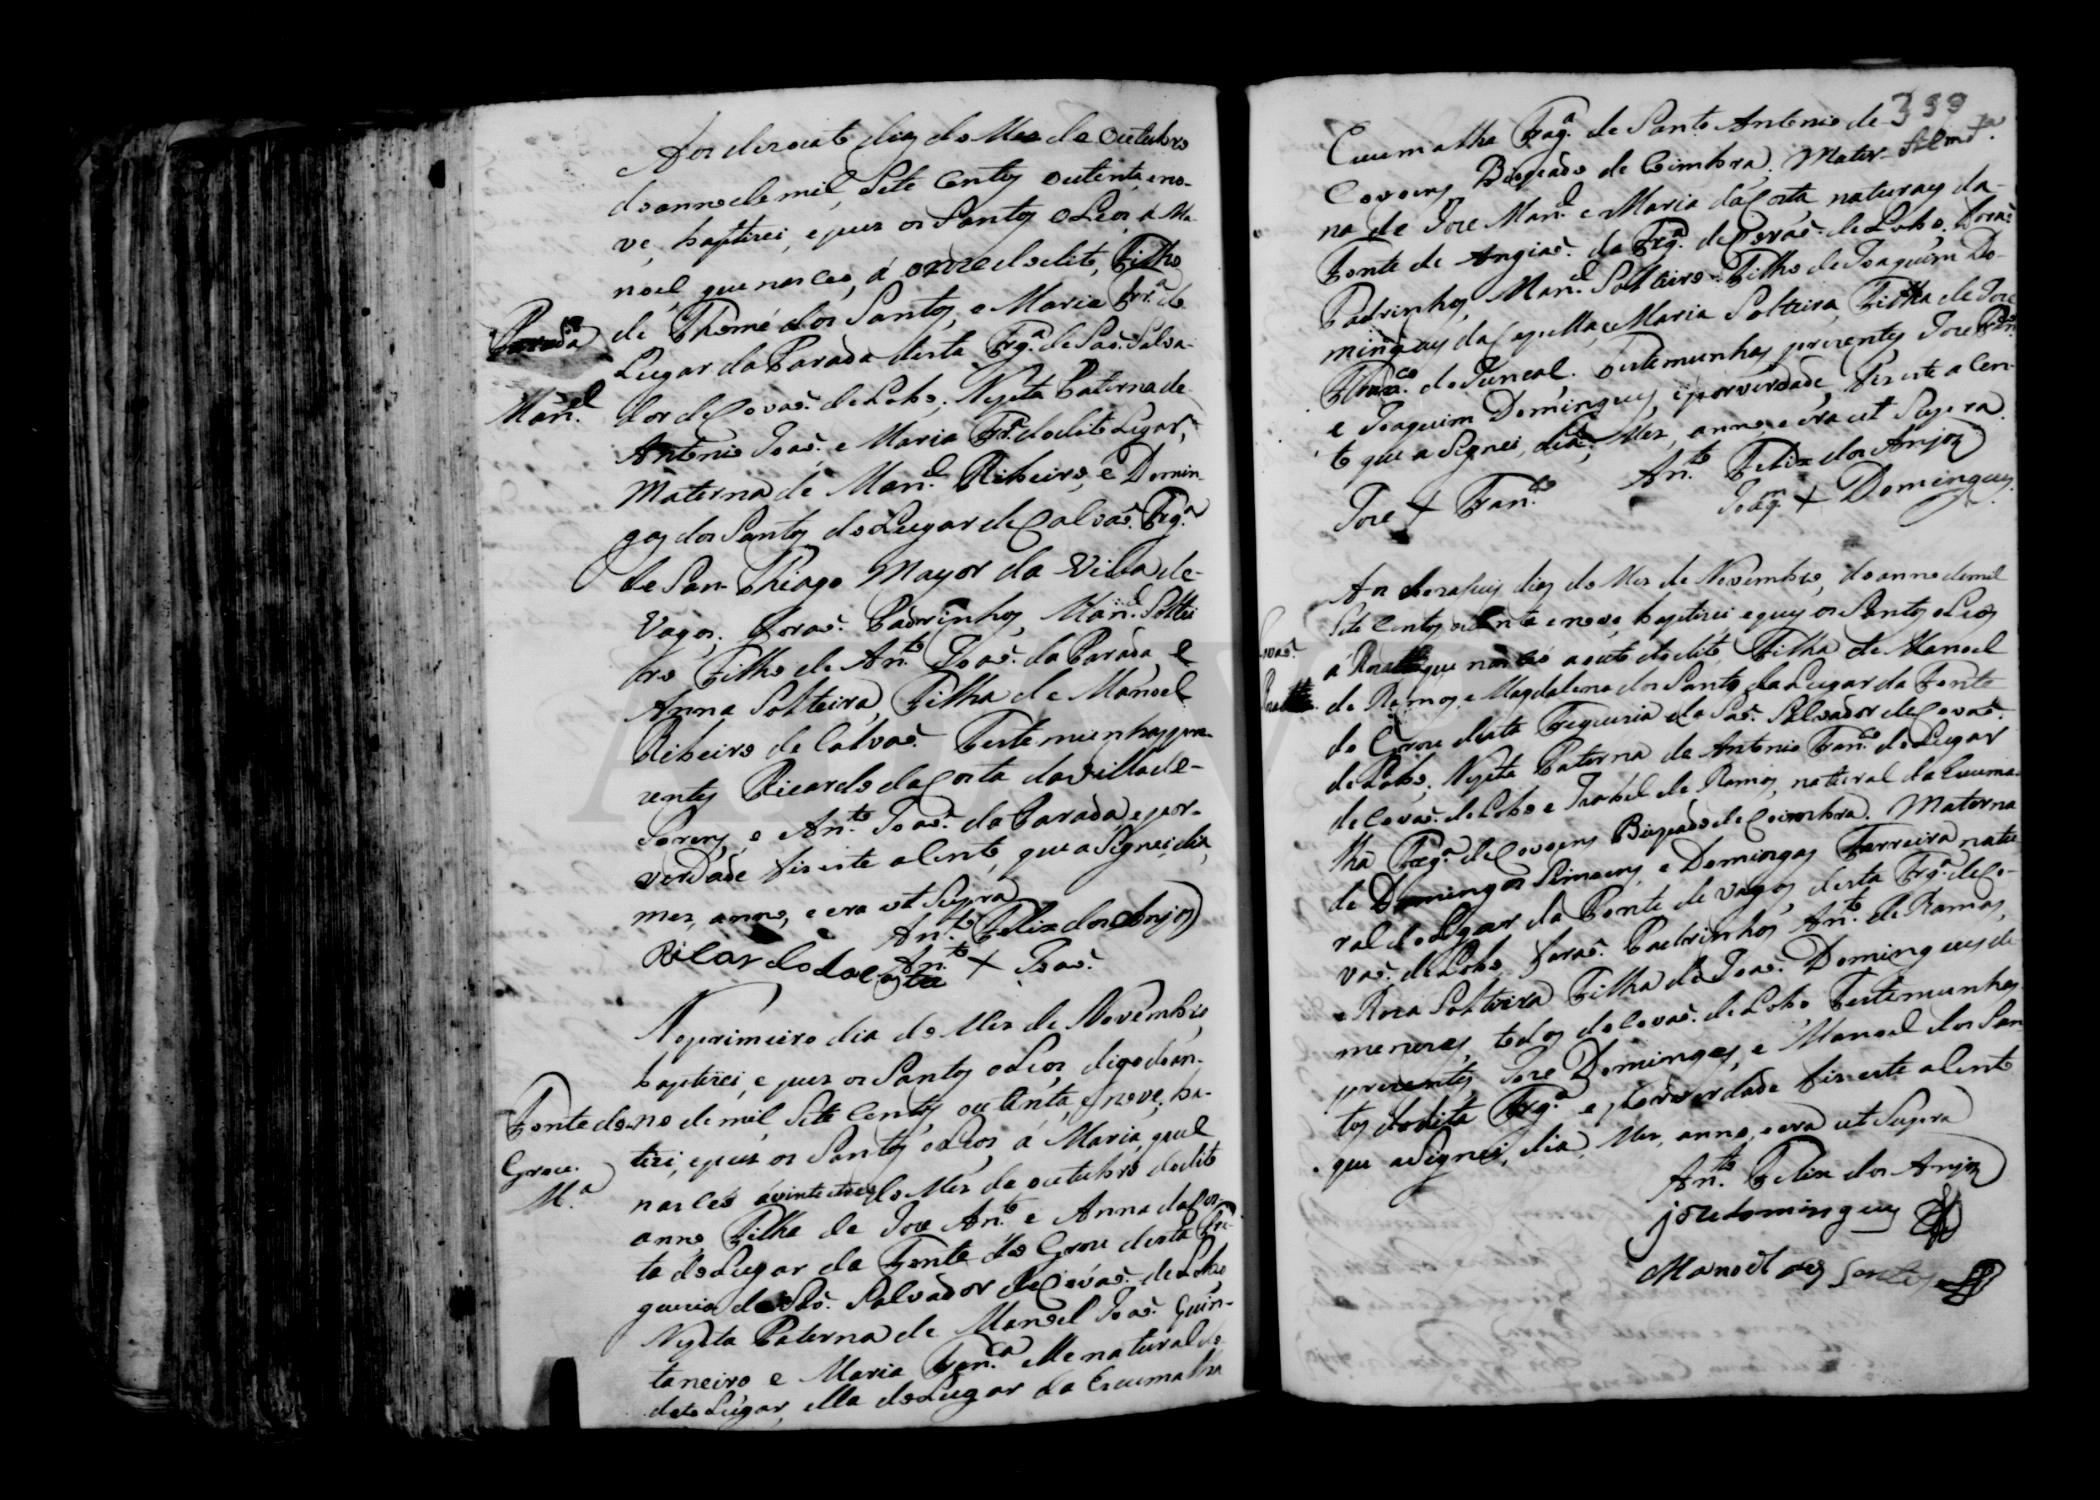 Aos dezoito dias do Mes de Outubro
do anno de mil, Sete Centos outenta, e no-
ve, baptizei, e puz os Santos oLeos, á Ma-
noel, que nasceo, á onze do dito, Filho
de Thomé dos Santos, e Maria Frr.ª do
Lugar da Parada desta Frg.ª de Saõ. Salva-
dor de Covaõ. do Lobo, Neyta Paterna de
Antonio Joaõ. e Maria Frr.ª do dito Lugar,
Materna de Man.el Ribeiro, e Domin-
gas dos Santos do Lugar de Calvaõ. Frg.ª
de San-Thiago Mayor da Villa de-
Vagos. foraõ. Padrinhos, Man.el Soltei
ro Filho de An.to Joaõ. da Parada, e
Anna Solteira, Filha de Manoel
Ribeiro de Calvaõ. Testemunhas pre-
zentes Ricardo da Costa da Villa de-
Sorens, e An.to Joaõ. da Parada, e por-
verdade fis este aSento, que aSignei, dia,
mes, anno, e era ut Supra
An.to Felix dos Anjos
Ricardo da Costa
An.to + Joaõ.
Parada
Man.el
No primeiro dia do Mes de Novembro,
baptizei, e puz os Santos oLeos, digo do an-
no de mil, Sete Centos outenta, e nove, ba-
tizei, e puz os Santos oLeos, á Maria, que
nasceo á vinte e tres do Mes de outubro do dito
anno Filha de Joze An.to e Anna da Cos-
ta do Lugar da Fonte do Grou desta Fre-
guezia de Saõ. Salvador de Covaõ. de Lobo,
Neyta Paterna de Manoel Joaõ. Quin-
taneiro e Maria Fran.ca elle natural do
dito Lugar, ella do Lugar da Criumalha
Fonte do
Grou.
M.ª
399
Cuumalha Frag.ª de Santo Antonio de
Covoens Bispado de Coimbra. Mater-
na de Joze Man.el e Maria da Costa, naturaes da-
Fonte de Angiaõ. da Frg.ª de Covaõ. de Lobo. Foraõ
Padrinhos, Man.el Solteiro Filho de Joaquim Do-
mingues da Capella, e Maria Solteira, Filha de Joze
Fran.co do Juncal. Testemunhas prezentes, Joze Fran.co
e Joaquim Domingues, e por verdade, fis este aCen-
to que aSignei, dia, Mes, anno, e era ut Supra.
An.to Felix dos Anjos
Joze + Fran.co
Joaq.m + Domingues.
Aos dezaseis dias do Mes de Novembro, do anno de mil
Sete Centos outenta e nove, baptizei e puz os Santos oLeos
á Roza que nasceo a oito do dito, Filha de Manoel
de Ramos, e Magdalena dos Santos da Lugar da Fonte
do Grou desta Freguezia de Saõ. Salvador de Covaõ.
de Lobo, Neyta Paterna de Antonio Fran.co do Lugar
de Covaõ. do Lobo e Izabel de Ramos, natural da Cuuma
lha Freg.ª de Covoens Bispado de Coimbra. Materna
de Domingos Simoens, e Domingas Ferreira natu
ral do Lugar da Ponte de Vagos, desta Frg.ª de Co-
vaõ. de Lobo, foraõ. Padrinhos An.to de Ramos,
e Roza Solteira Filha de Joaõ. Domingues de
menores, todos de Covaõ. de Lobo, Testemunhas
prezentes Joze Domingues, e Manoel dos San
tos da dita Frg.ª e por verdade fis este aSento
que aSignei, dia, Mes, anno, e era ut Supra
An.to Felix dos Anjos
joze domingues
Manoel dos Santos